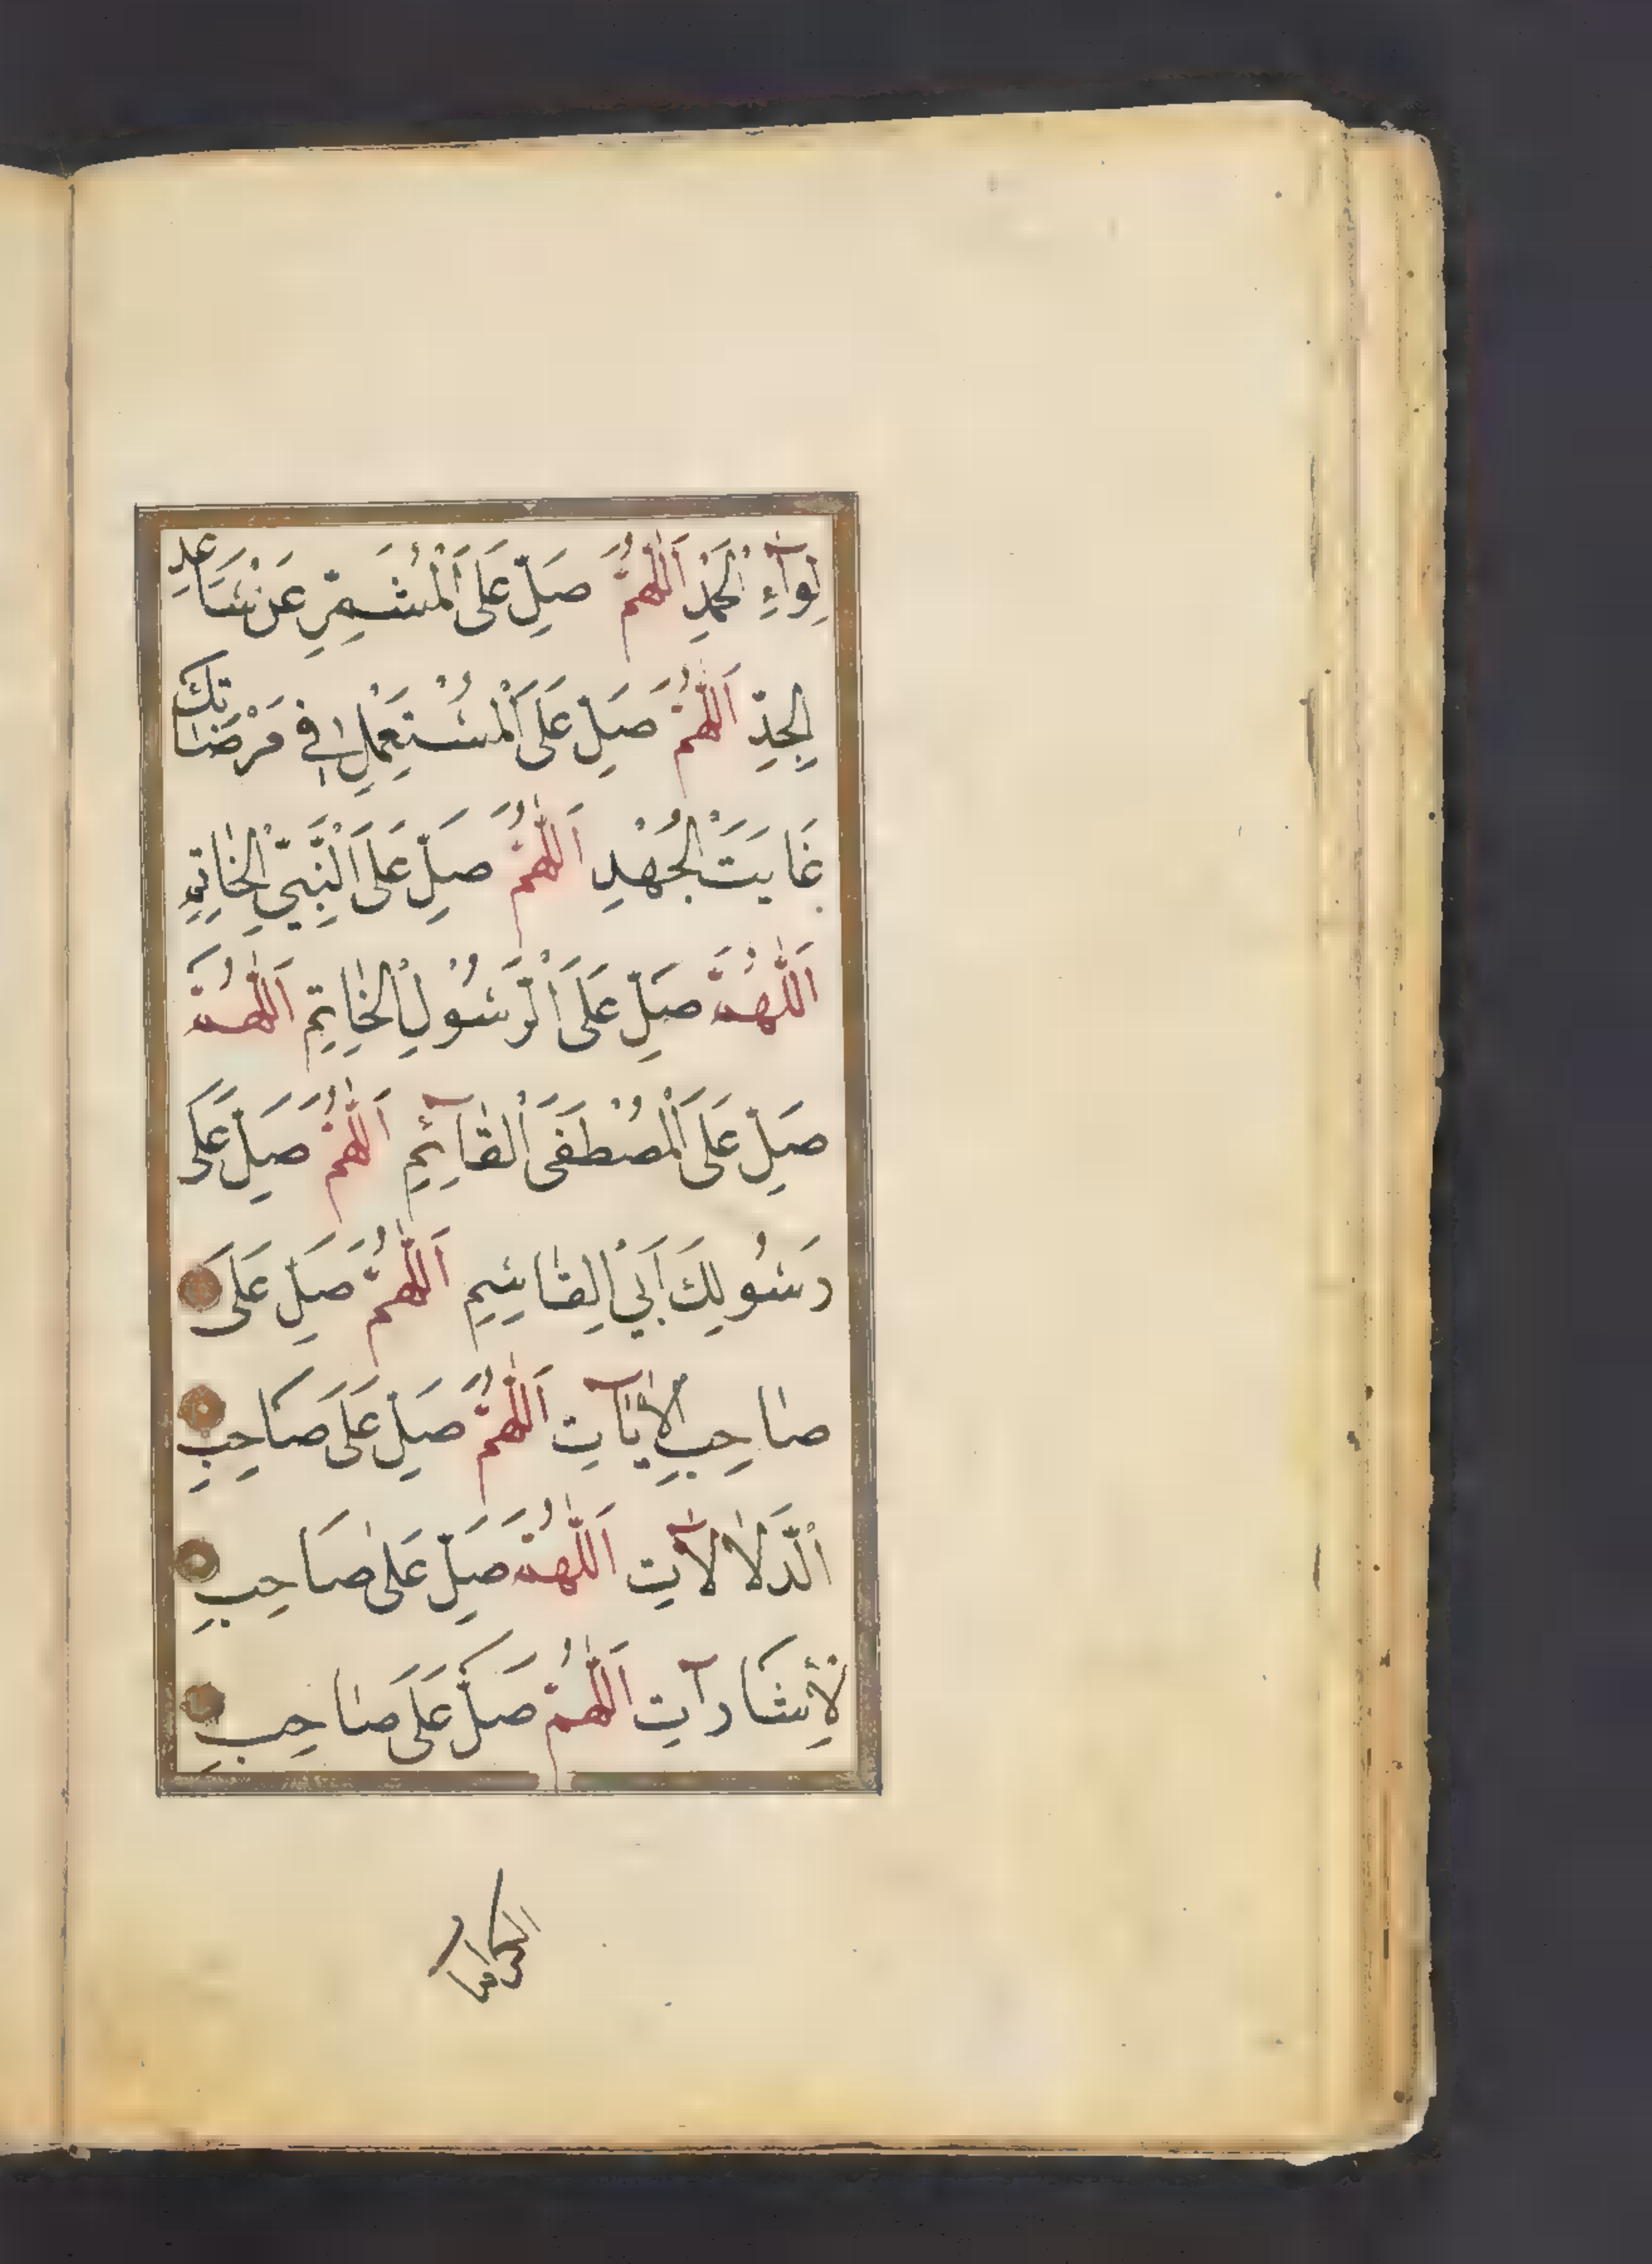 لِوَآءِ الْحَمْدِ اَللّٰهُمَّ صَلِّ عَلَى اَلْمُشَمِّرِ عَنْ سَاعِدِ
الْجِدِّ اَللّٰهُمَّ صَلِّ عَلَى اَلْمُسْتَعْمِلِ فِي مَرْضَاتِكَ
غَايَتَ الْجُهْدِ اَللّٰهُمَّ صَلِّ عَلَى اَلنَّبِيِّ الْخَاتِمِ
اَللّٰهُمَّ صَلِّ عَلَى اَلرَّسُولِ الْخَاتِمِ اَللّٰهُمَّ
صَلِّ عَلَى اَلْمُصْطَفَى اَلْقَآئِمِ اَللّٰهُمَّ صَلِّ عَلَى
رَسُولِكَ اَبِي الْقَاسِمِ اَللّٰهُمَّ صَلِّ عَلَى
صَاحِبِ الْاٰيَآتِ اَللّٰهُمَّ صَلِّ عَلَى صَاحِبِ
اَلدَّلَالَآتِ اَللّٰهُمَّ صَلِّ عَلٰى صَاحِبِ
لْأِشَارَآتِ اَللّٰهُمَّ صَلِّ عَلَى صَاحِبِ
الكرامات